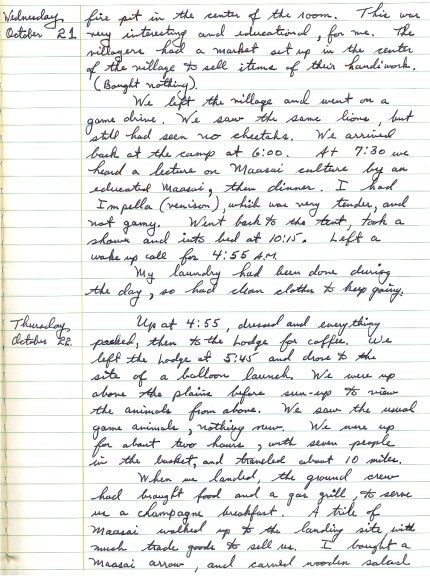 Wednesday, October 21
fire pit in the center of the room. This was
very interesting and educational, for me. The
villagers had a market set up in the center
of the village to sell items of their handiwork.
(Bought nothing).
We left the village and went on a
game drive. We saw the same lions, but
still had seen no cheetahs. We arrived
back at the camp at 6:00. At 7:30 we
heard a lecture on Maasai culture by an
educated Maasai, then dinner. I had
Impella (venison), which was very tender, and
not gamy. Went back to the tent, took a
shower and into bed at 10:15. Left a
wake up call for 4:55 A.M.
My laundry had been done during
the day, so had clean clothes to keep going.
Thursday, October 22
Up at 4:55, dressed and everything
packed, then to the Lodge for coffee. We
left the Lodge at 5:45 and drove to the
site of a balloon launch. We were up
above the plains before sun-up to view
the animals from above. We saw the usual
game animals, nothing new. We were up
for about two hours, with seven people
in the basket, and traveled about 10 miles.
When we landed, the ground crew
had brought food and a gas grill, to serve
us a champagne breakfast. A tribe of
Maasai walked up to the landing site, with
much trade goods to sell us. I bought a
Maasai arrow, and carved wooden salad